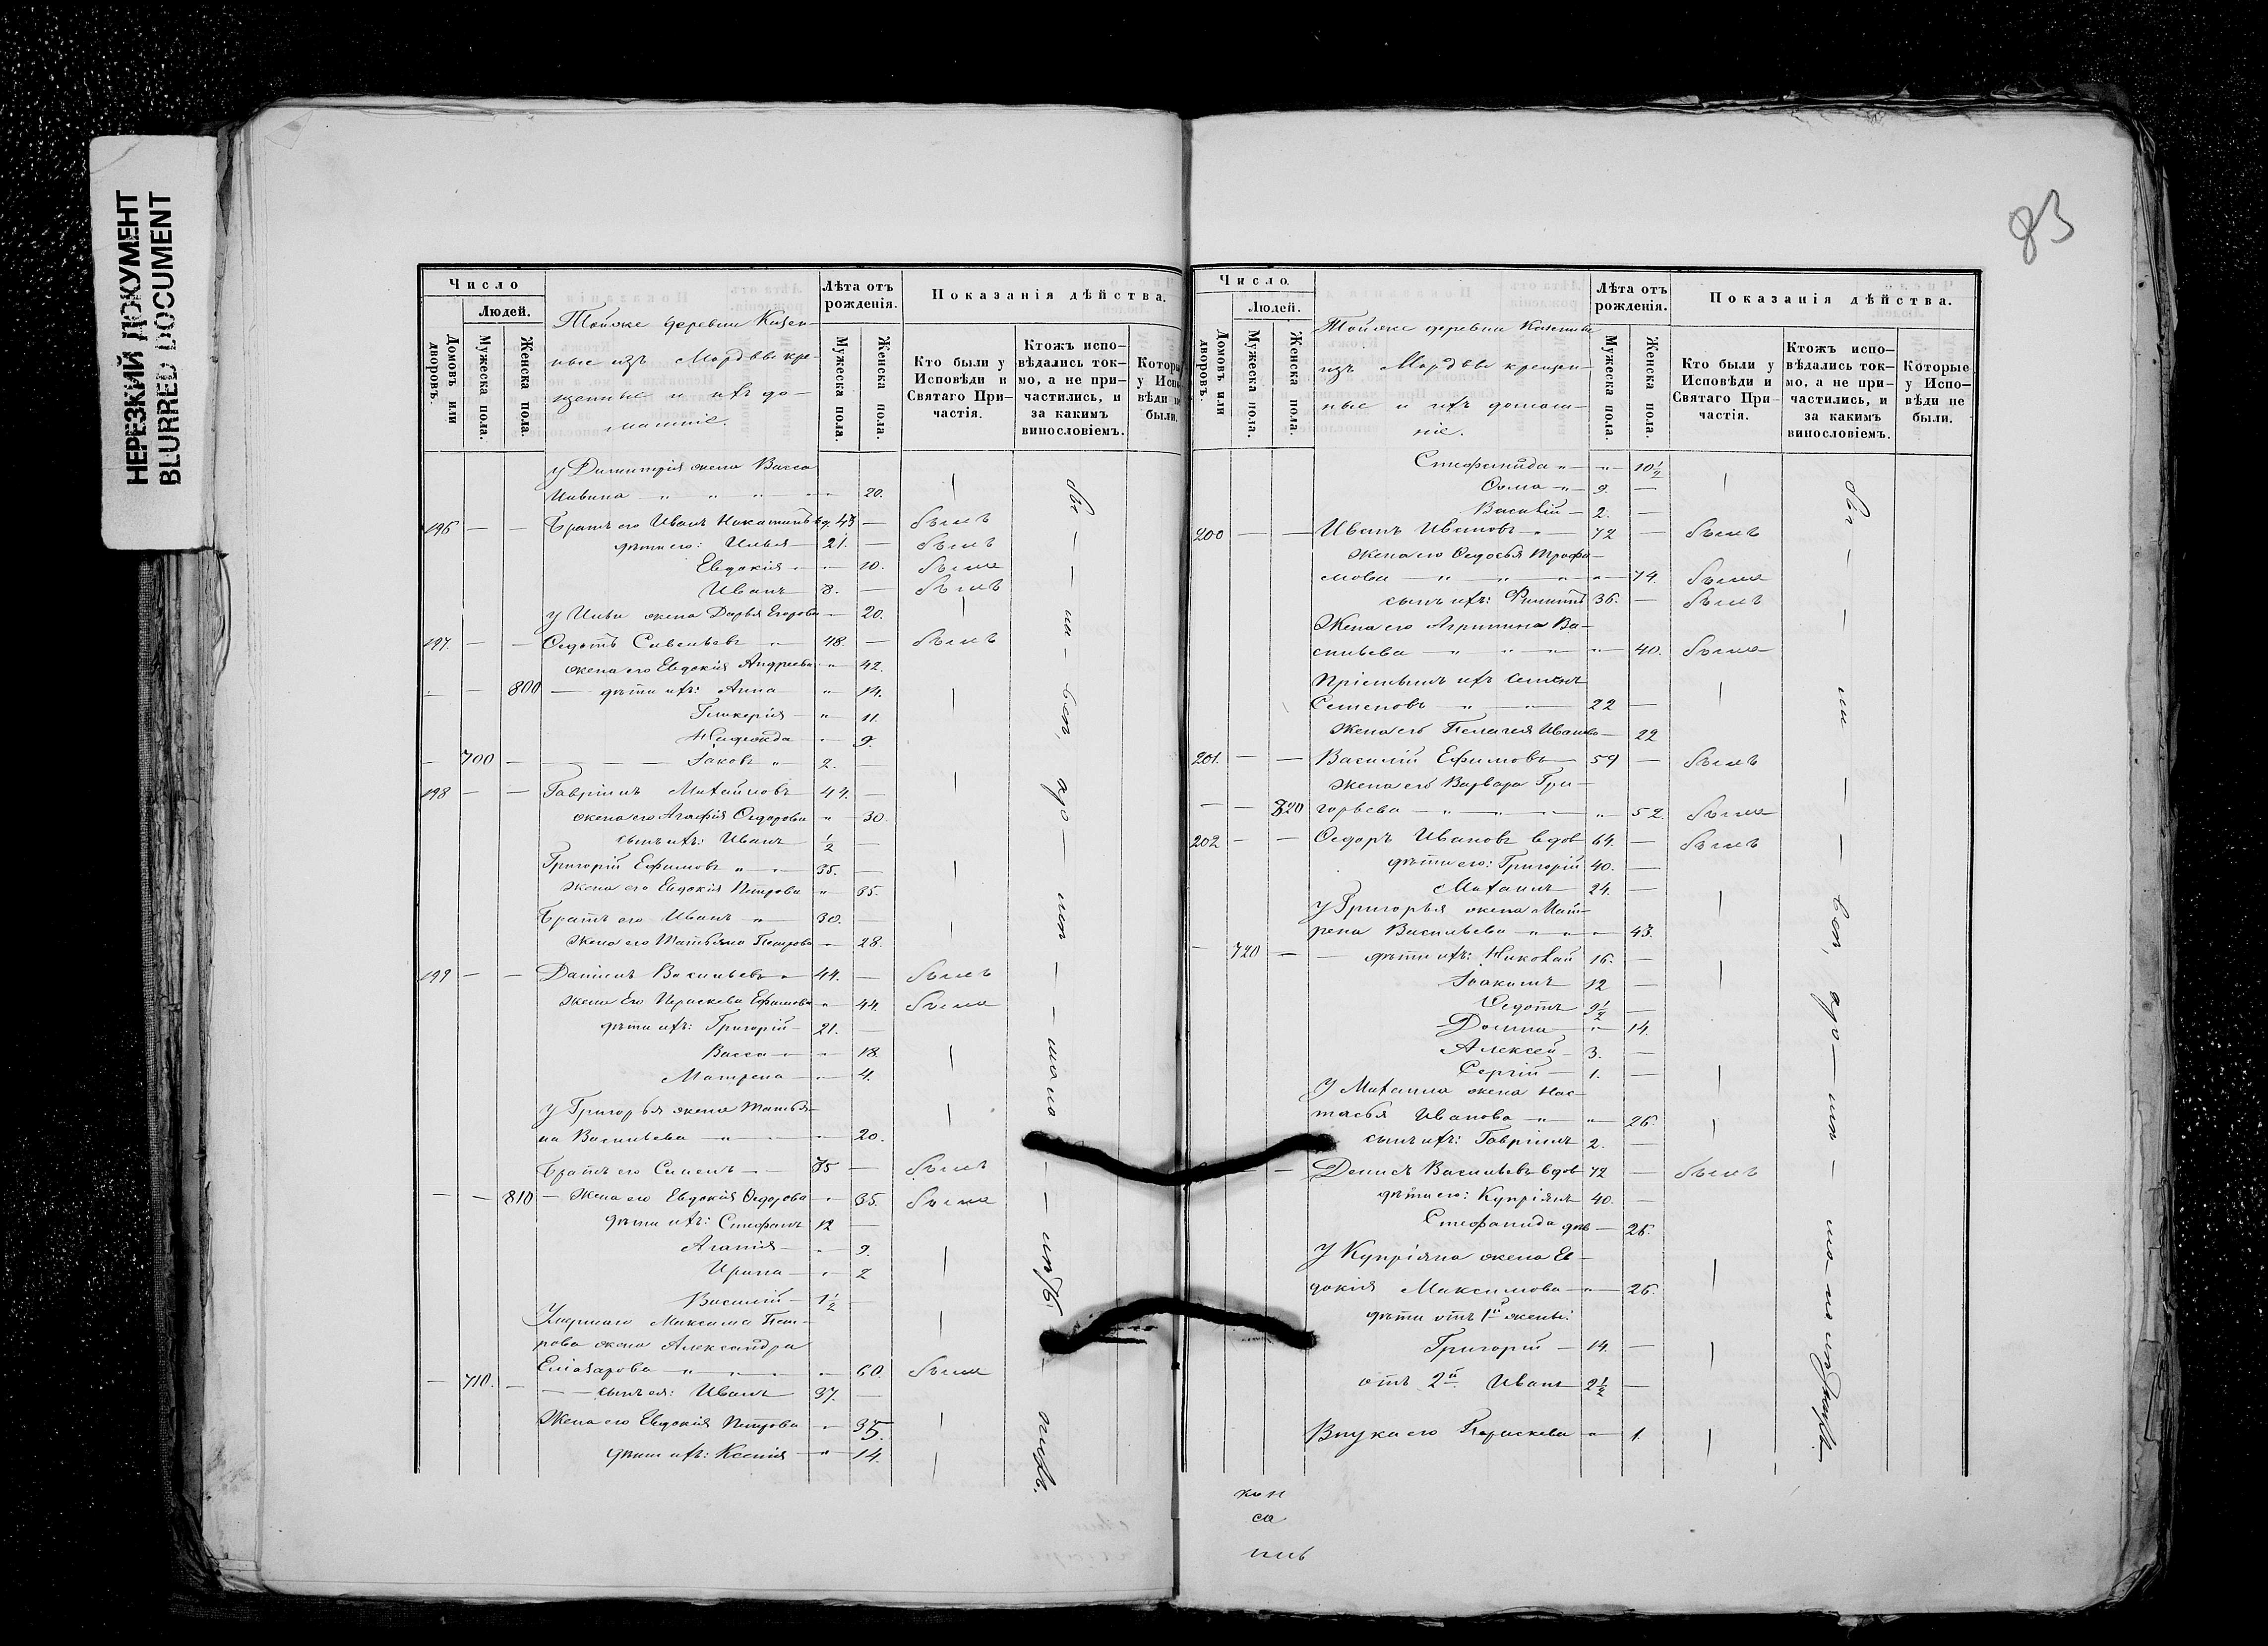 НЕРЕЗКИЙ ДОКУМЕНТ
BLURRED DOCUMENT
83
Число
Людей.
Домовъ или дворовъ.
Мужеска пола.
Женска пола.
Тойже деревни Казен-
ные изъ Мордвы кре-
щенные и ихъ до-
машніе.
Лѣта отъ рожденія.
Мужеска пола.
Женска пола.
Показанія дѣйства.
Кто были у Исповѣди и Святаго При-частія.
Ктожъ испо-вѣдались ток-мо, а не при-частились, и за какимъ винословіемъ.
у Димитрія жена Васса
" " " " 20.
196 — — Братъ его Иванъ Никитинъ вд. 43 — былъ
дѣти его: Илья 21. — былъ
Евдокія " — 10. была
Иванъ 8. — былъ
у Ильи жена Дарья Егорова — 20.
197. — — Ѳедотъ Савельевъ " 48. — былъ
жена его Евдокія Андреева " 42.
— — 800 — дѣти ихъ: Анна " 14.
Гликерія " 11.
Надежда " 9.
— 700 — — — — Іаковъ " 2. —
198 — — Гавріилъ Михайловъ 44. —
жена его Агафія Ѳедорова " 30.
сынъ ихъ: Иванъ ½ —
Григорій Ефимовъ " " 35. —
Жена его Евдокія Петрова " 35.
Братъ его Иванъ " 30.
Жена его Татьяна Петрова " 28.
199 — — Даніилъ Васильевъ " 44. — былъ
Жена Его Параскева Ефимова " 44. была
дѣти ихъ: Григорій 21. —
Васса " — 18.
Матрена — 4.
У Григорья жена Татья-
на Васильева — " — " 20.
Братъ его Симеонъ — 35 — былъ
— — 810 — Жена его Евдокія Ѳедорова " 35. была
дѣти ихъ: Стефанъ 12 —
Агапія " 9.
Ирина " 2
Василій 1½ —
Умершаго Максима Пет-
рова жена Александра
Елизарова " " " " 60. была
— 710. — — — сынъ ея: Иванъ 37. —
Жена его Евдокія Петрова " 35.
дѣти ихъ: Ксенія " 14.
Число
Людей.
Домовъ или дворовъ.
Мужеска пола.
Женска пола.
Тойже деревни Казенные
изъ Мордвы крещен-
ные и ихъ домаш-
ніе.
Лѣта отъ рожденія.
Мужеска пола.
Женска пола.
Показанія дѣйства.
Кто были у Исповѣди и Святаго При-частія.
Ктожъ испо-вѣдались ток-мо, а не при-частились, и за какимъ винословіемъ.
Которые у Испо-вѣди не были.
Стефанида " — " 10½
Ѳома " 9. —
Василій — 2. —
200 — — Иванъ Ивановъ " 72 — былъ
Жена его Ѳедосья Трофи-
мова — " — " — " 74. была
сынъ ихъ: Филиппъ 36. — былъ
Жена его Агрипина Ва-
сильева — " " " " 40. была
Пріемышъ ихъ Семенъ
Семеновъ " " 22 —
Жена его Пелагея Иванова — 22
201. — — Василій Ефимовъ 59 — былъ
Жена его Варвара Гри-
— — 820 горьева — " — " — " 52. была
202 — — Ѳедоръ Ивановъ вдов 64. — былъ
дѣти его: Григорій 40. —
Михаилъ 24. —
У Григорья жена Мат-
рена Васильева " " " 43.
— 720 — — дѣти ихъ: Николай 16. —
Іоакимъ 12 —
Ѳедотъ 9½ —
Домна " 14.
Алексей 3. —
Сергій — 1. —
У Михаила жена Нас-
тасья Иванова " " 26.
сынъ ихъ: Гавріилъ 2. —
— — Денисъ Васильевъ вдов 72 — былъ
дѣти его: Купріянъ 40. —
Стефанида дѣв — 26.
У Купріяна жена Ев-
докія Максимова — " 26.
дѣти отъ 1й жены:
Григорій — 14. —
отъ 2й Иванъ 2½ —
Внука его Параскева " 1.